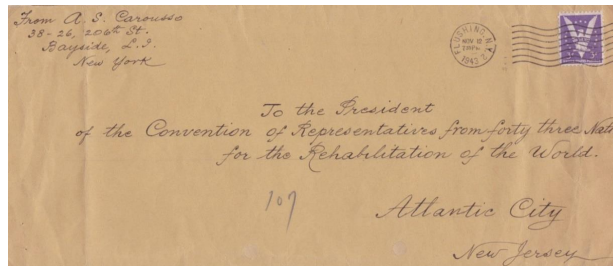 From A. S. Carousso
38-26, 206th St.
Bayside, L.I.
New York
FLUSHING, N.Y.
NOV 12
1943
To the President
of the Convention of Representatives from forty three
for the Rehabilitation of the World.
107
Atlantic City
New Jersey